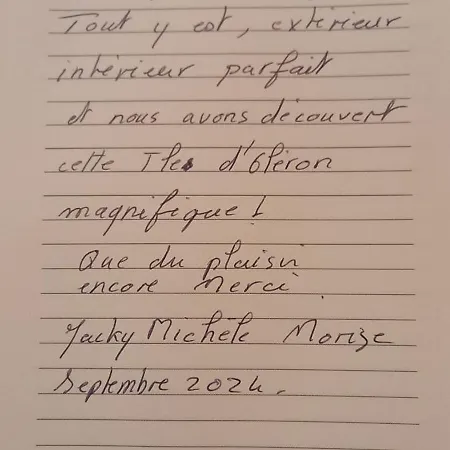 Tout y est, extérieur
intérieur parfait
et nous avons découvert
cette Ile d'Oléron
magnifique !
Que du plaisir
encore Merci.
Jacky Michèle Morize
Septembre 2024.